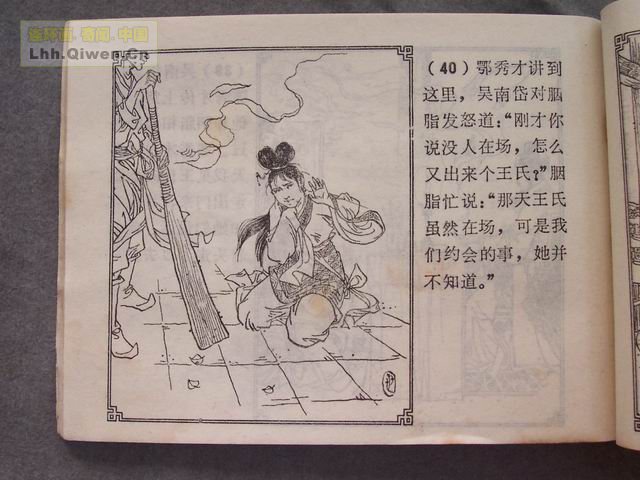 连环画.奇闻.中国
Lhh.Qiwen.Cn
（40）鄂秀才讲到
这里，吴南岱对胭
脂发怒道：“刚才你
说没人在场，怎么
又出来个王氏？”胭
脂忙说：“那天王氏
虽然在场，可是我
们约会的事，她并
不知道。”